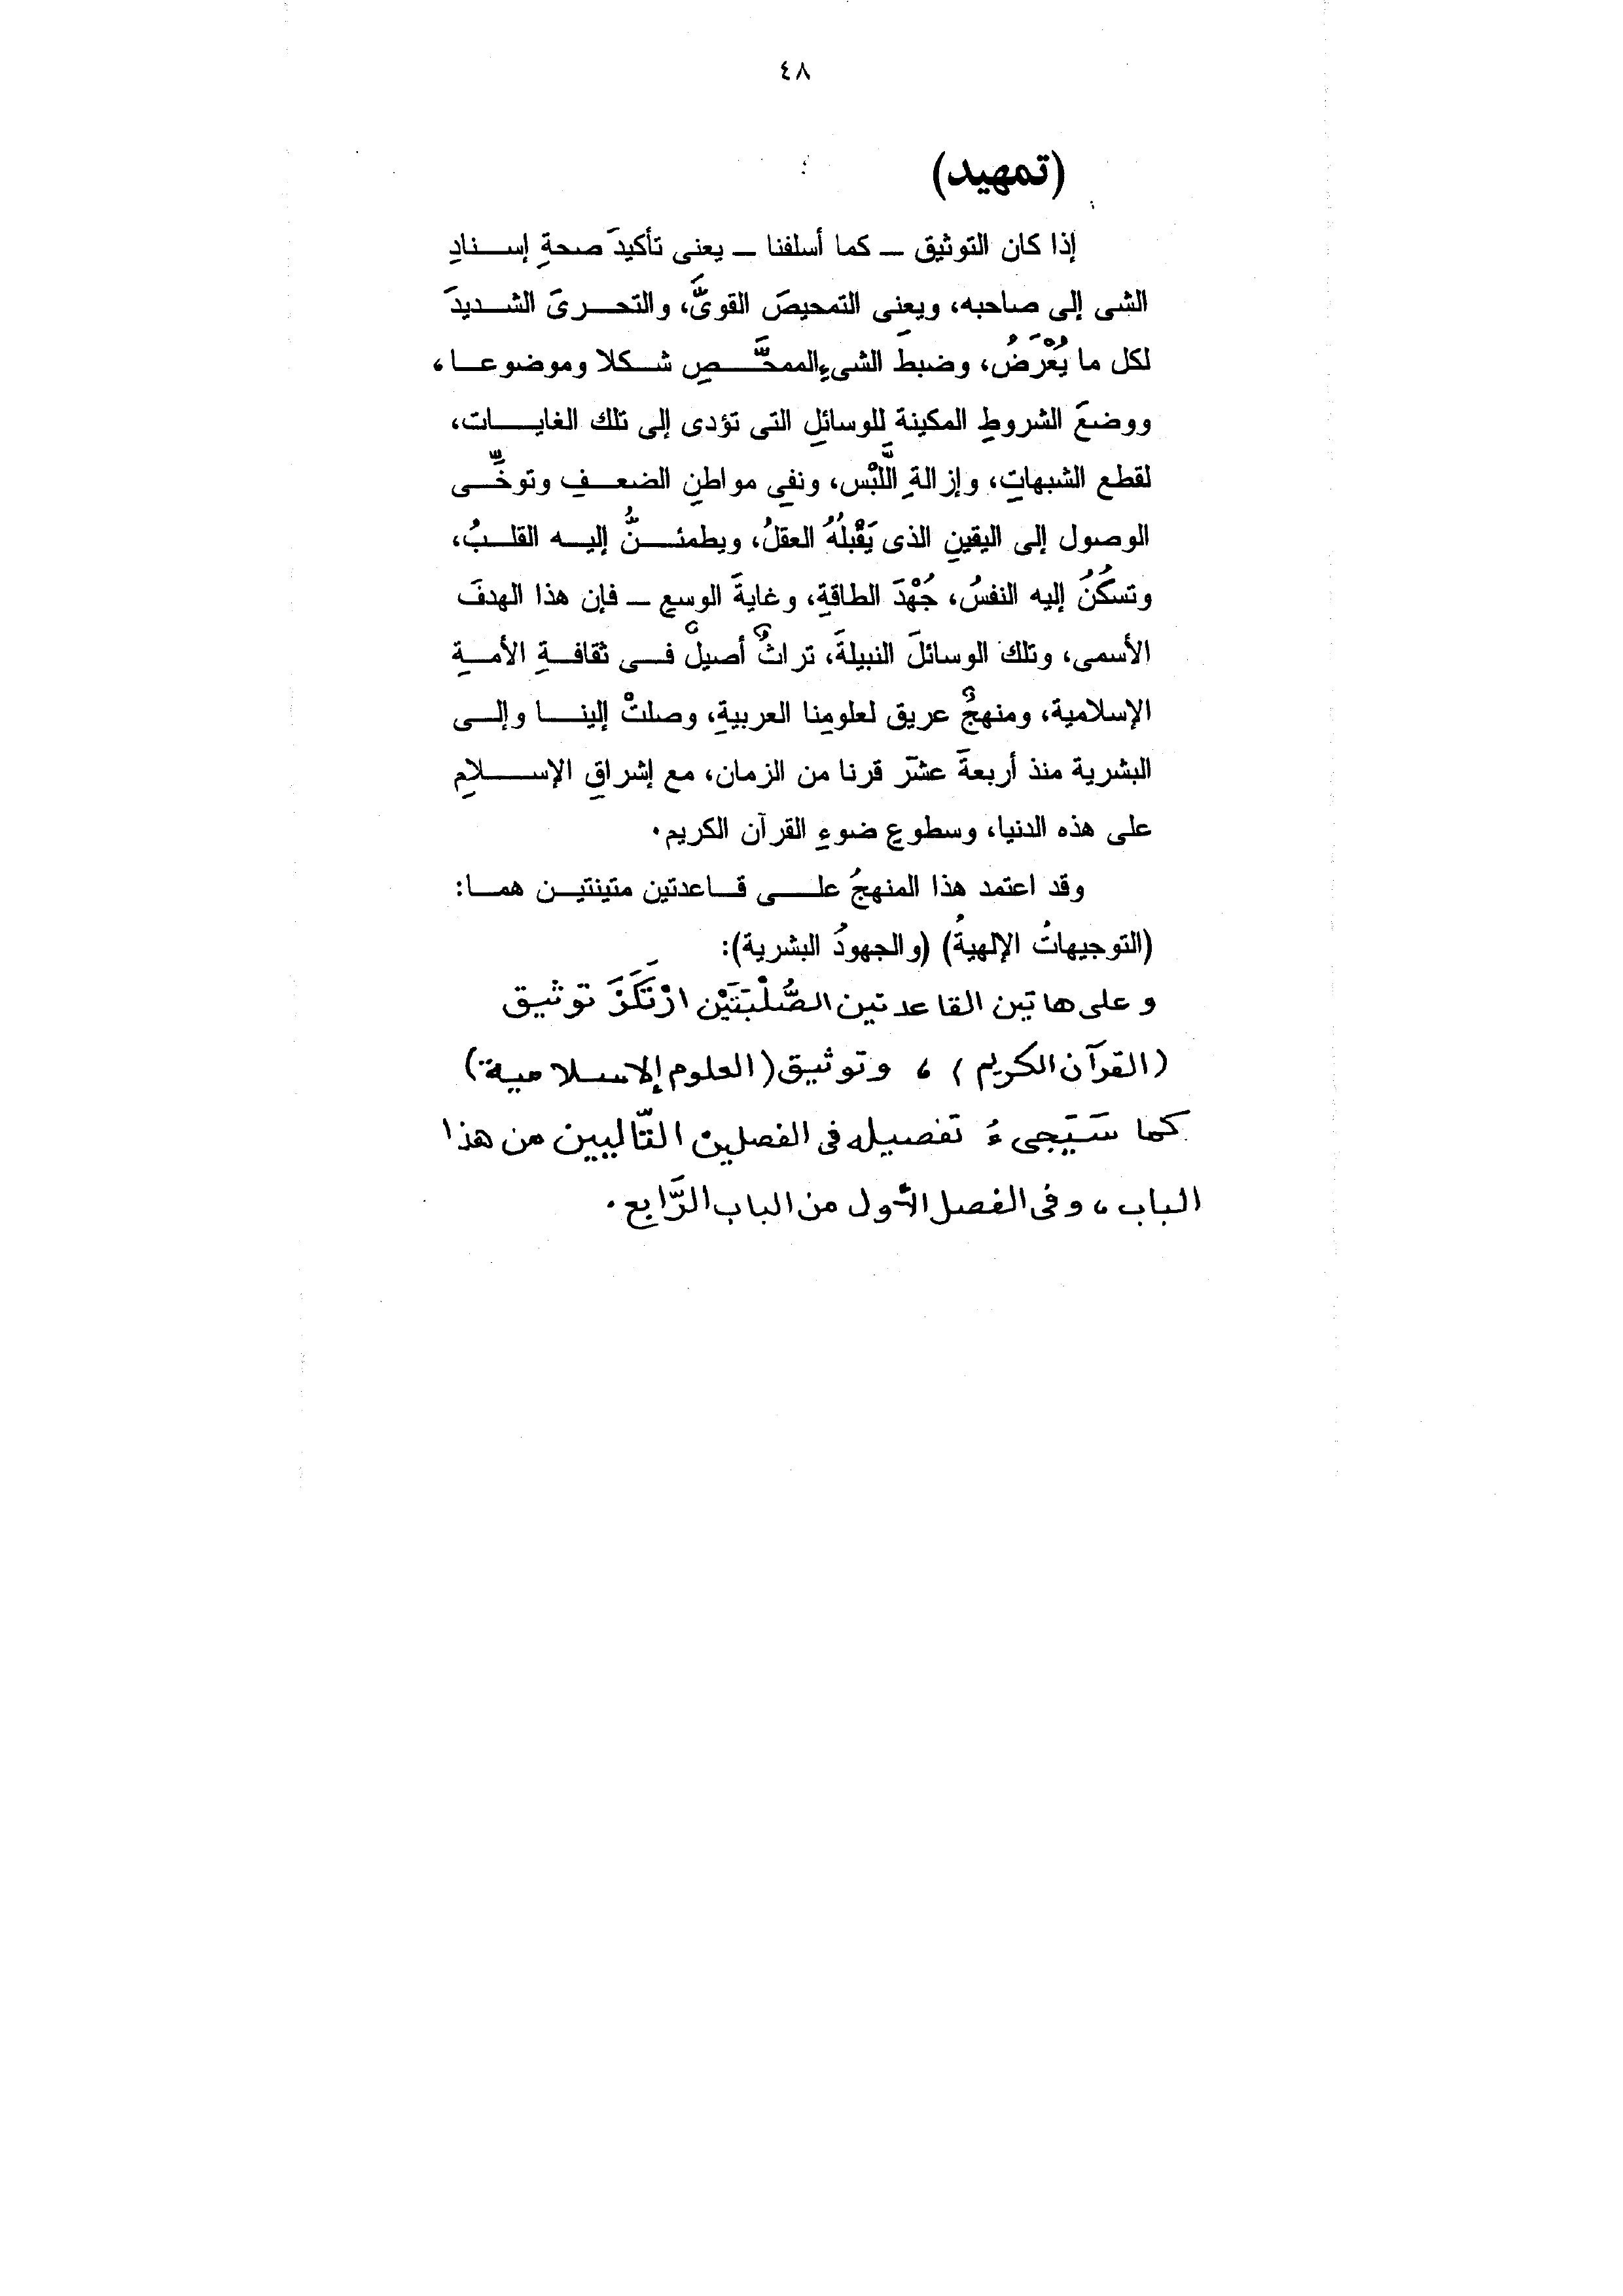 ٤٨
(تمهيد)
إذا كان التوثيق ــ كما أسلفنا ــ يعنى تأكيدَ صحةِ إسنادِ
الشى إلى صاحبه، ويعنِى التمحيصَ القوىَّ، والتحرىَ الشديدَ
لكل ما يُعْرَضُ، وضبطَ الشىءِ الممحَّصِ شكلا وموضوعا،
ووضعَ الشروطِ المكينة للوسائلِ التى تؤدى إلى تلك الغايات،
لقطع الشبهاتِ، وإزالةِ اللَّبْس، ونفىِ مواطنِ الضعفِ وتوخِّى
الوصول إلى اليقينِ الذى يَقْبلُهُ العقلُ، ويطمئنُّ إليه القلبُ،
وتسكُنُ إليه النفسُ، جُهْدَ الطاقةِ، وغايةَ الوسعِ ــ فإن هذا الهدفَ
الأسمى، وتلك الوسائلَ النبيلةَ، تراثٌ أصيلٌ فى ثقافةِ الأمةِ
الإسلامية، ومنهجٌ عريق لعلومِنا العربيةِ، وصلتْ إلينا وإلى
البشرية منذ أربعةَ عشَرَ قرنا من الزمان، مع إشراقِ الإسلامِ
على هذه الدنيا، وسطوعِ ضوءِ القرآن الكريم.
وقد اعتمد هذا المنهجُ على قاعدتين متينتين هما:
(التوجيهاتُ الإلهيةُ) (والجهودُ البشرية):
وعلى هاتين القاعدتين الصُّلْبَتَيْن ارْتَكَزَ توثيق
(القرآن الكريم)، وتوثيق (العلوم الإسلامية)
كما سَيَجىءُ تفصيله فى الفصلين التَّاليين من هذا
الباب، وفى الفصل الأَول من الباب الرَّابع.